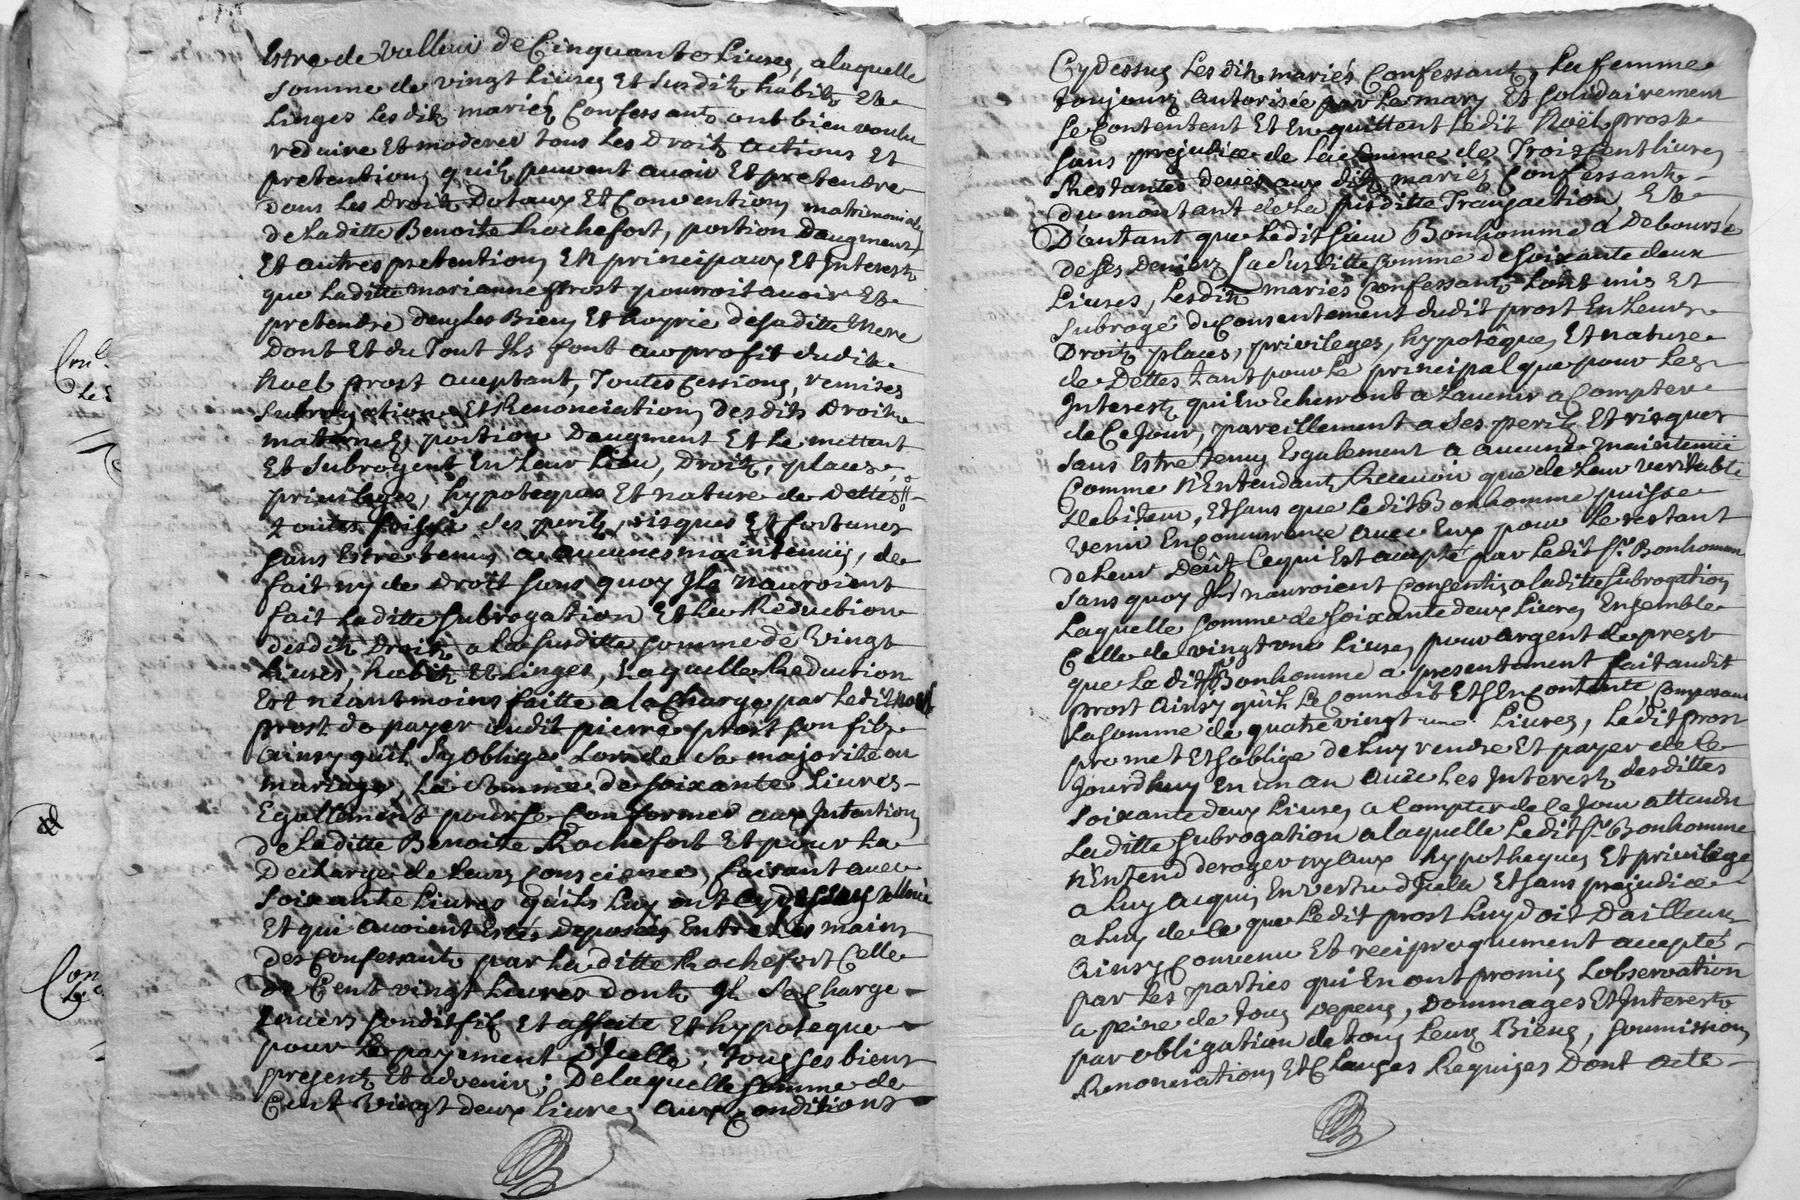 Estre de valleur de Cinquante Livres, a laquelle
somme de vingt Livres Et susdits habits Et
Linges Lesdits mariés Confessants ont bien voulu
reduire Et moderer tous Les Droits actions Et
pretentions quils peuvent avoir Et pretendre
dans Les Droits Dotaux Et Conventions matrimoniales
de Laditte Benoite Rochefort, portion Daugment,
Et autres pretentions En principaux Et Interests
que Laditte marianne prost pourroit avoir Et
pretendre dens Les Biens Et hoyrie de saditte Mere
Dont Et du Tout Ils font au profit dudit
Noel prost aceptant, Toutes Cessions, remises
subrogations Et Renonciations desdits Droits
maternels, portion Daugment Et Le mettent
Et subrogent En Leur Lieu, Droits, places,
privileges, hypoteques Et nature de Dettes
toutes fois a ses perils, risques Et fortunes
sans Estre tenus a aucunes maintenuës, de
fait ny de Droit sans quoy Ils nauroient
fait Laditte subrogation Et La Reduction
desdits Droits a La susditte somme de Vingt
Livres, habits Et Linges, Laquelle Reduction
Est néantmoins faitte a la Charge par Ledit Noel
prost de payer audit pierre prost son fils
Ainsy quil Sy oblige Lors de sa majorité ou
mariage, La somme de soixante Livres
Egallement pour se Conformer aux Intentions
de Laditte Benoite Rochefort Et pour La
Decharge de Leurs Conscience, faisant avec
soixante Livres quils Luy ont Cydessus
Et qui avoient Estés Deposées Entre Les mains
des Confessants par La ditte Rochefort Celle
De Cent vingt Livres dont Il Se Charge
Envers sondit fils Et affecte Et hypoteque
pour Le payement D'Icelle, Tous ses biens
present Et advenir; De laquelle somme de
Cent Vingt deux Livres aux Conditions
Cydessus Lesdits mariés Confessants, La femme
toujours autorisée par Le mary Et solidairement
se Contentent Et En quittent Ledit Noël prost
sans prejudice de La somme de Trois Cent livres
Restantes deuës aux dits mariés Confessants
du montant de La susditte Transaction, Et
D'autant que Ledit Sieur Bonhomme a Deboursé
de Ses Deniers La susditte somme de soixante deux
Livres, Lesdits mariés Confessants Lont mis Et
subrogé du Consentement dudit prost En Leurs
Droits, places, privileges, hypotêques Et nature
de Dettes tant pour Le principal que pour Les
Interests qui En Echerront a Lavenir a Compter
de Ce Jour, pareillement a Ses perils Et risques
sans Estre tenus Egalement a aucune maintenuë
Comme N'Entendants Recevoir que de Leur veritable
debiteur, Et sans que Ledit Bonhomme puisse
venir En Concurrence avec Eux pour Le restant
de Leur Deût Ce qui Est accepté par Ledit Sr. Bonhomme
sans quoy Ils nauroient Consentis a laditte subrogation
Laquelle somme de soixante deux Livres Ensemble
Celle de vingt une Livres pour argent de prest
que Ledit Sr Bonhomme a presentement fait audit
prost Ainsy quil Le Connoit Et s'En Contente Composant
La somme de quatre vingt une Livres, Ledit prost
promet Et soblige de Luy rendre Et payer de Ce
Jourdhuy En un an avec Les Interests desdittes
soixante deux Livres a Compter de Ce Jour attendu
Laditte subrogation a laquelle Ledit Sr. Bonhomme
n'Entend deroger ny aux hypotheques Et privileges
a Luy acquis En vertu d'Icelle Et sans prejudice
a Luy de Ce que Ledit prost Luy doit D'ailleurs
Ainsy Convenu Et reciproquement accepté
par Les parties qui En ont promis Lobservation
a peine de Tous depens, Dommages Et Interests
par obligation de Tous Leurs Biens, soumissions
Renonciations Et Clauses Requises Dont acte